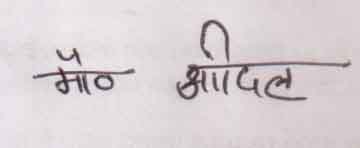 मो० आदिल